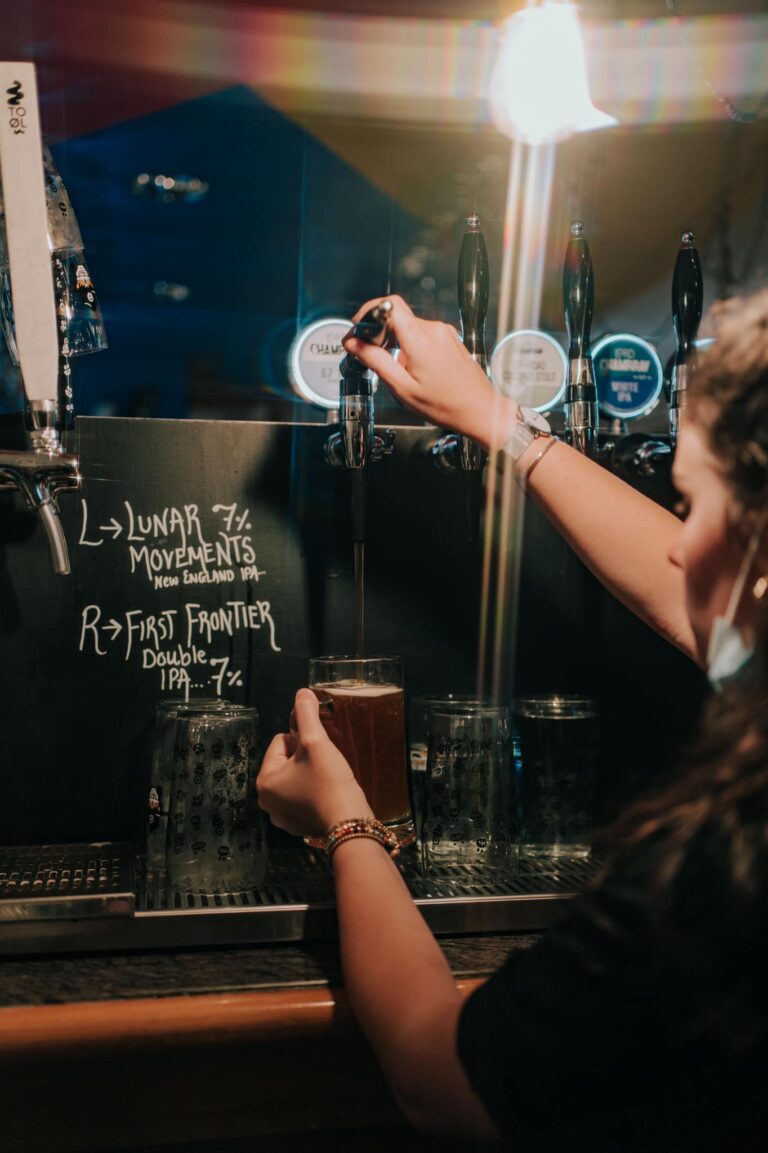 TO
ØL
L→LUNAR 7%
MOVEMENTS
NEW ENGLAND IPA
R→FIRST FRONTIER
DOUBLE
IPA...7%
WHITE
IPA